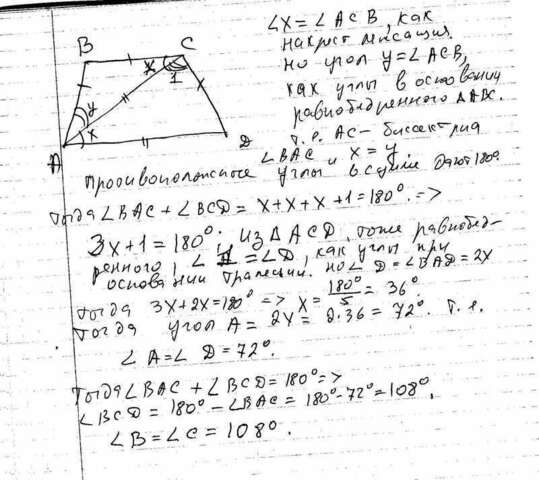 B C
x 1
y
x
A D
∠X = ∠ACB, как
накрест лежащия.
но угол y = ∠ACB,
как углы в основании
равнобедренного ΔABC.
т.е. AC - биссектриа
∠BAC и x = y.
Противоположные углы в сумме дают 180°.
Тогда ∠BAC + ∠BCD = x + x + x + 1 = 180° =>
3x + 1 = 180°. Из ΔACD, тоже равнобед-
ренного, ∠1 = ∠D, как углы при
основании трапеции. но ∠D = ∠BAD = 2x
Тогда 3x + 2x = 180° => x = 180°/5 = 36°
Тогда угол A = 2x = 2·36 = 72°. т.е.
∠A = ∠D = 72°.
Тогда ∠BAC + ∠BCD = 180° =>
∠BCD = 180° - ∠BAC = 180° - 72° = 108°.
∠B = ∠C = 108°.